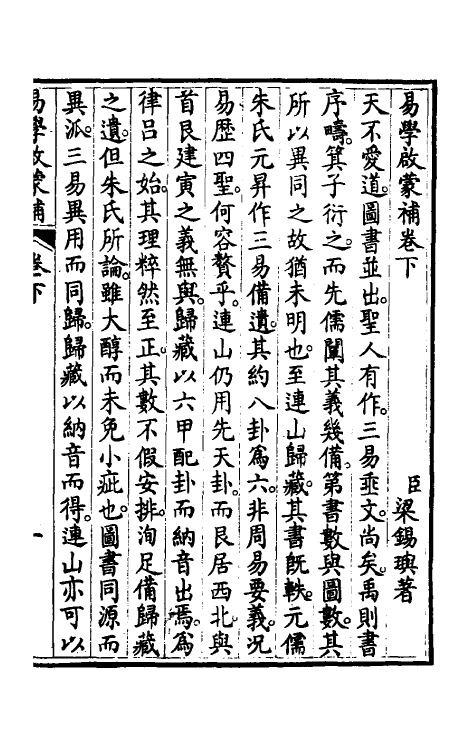 易學啟蒙補卷下
臣梁錫璵著
天不愛道。圖書並出。聖人有作。三易垂文。尚矣。禹則書
序疇。箕子衍之。而先儒闡其義幾備。第書數與圖數。其
所以異同之故猶未明也。至連山歸藏。其書既軼。元儒
朱氏元昇作三易備遺。其約八卦為六。非周易要義。況
易歷四聖。何容贅乎。連山仍用先天卦。而艮居西北。與
首艮建寅之義無與。歸藏以六甲配卦而納音出焉。為
律呂之始。其理粹然至正。其數不假安排。洵足備歸藏
之遺。但朱氏所論。雖大醇而未免小疵也。圖書同源而
異派。三易異用而同歸。歸藏以納音而得。連山亦可以
易學啟蒙補
卷下
一